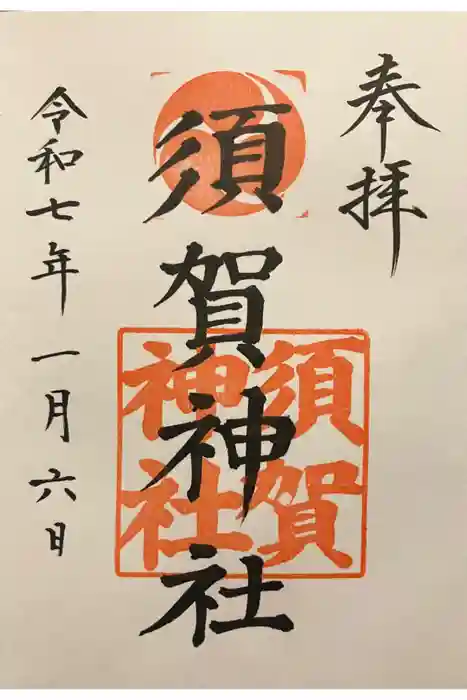 奉拝
須賀神社
須賀
神社
令和七年一月六日